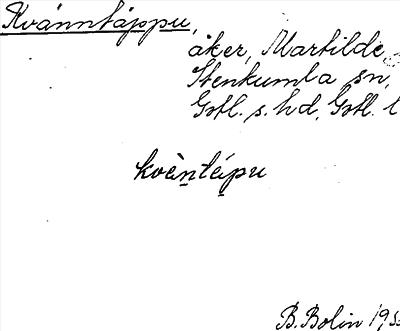 Kvänntäppu,
åker, Martilde
Stenkumla sn,
Gotl. s. hd, Gotl. l
kvèntépu
B. Bolin 195